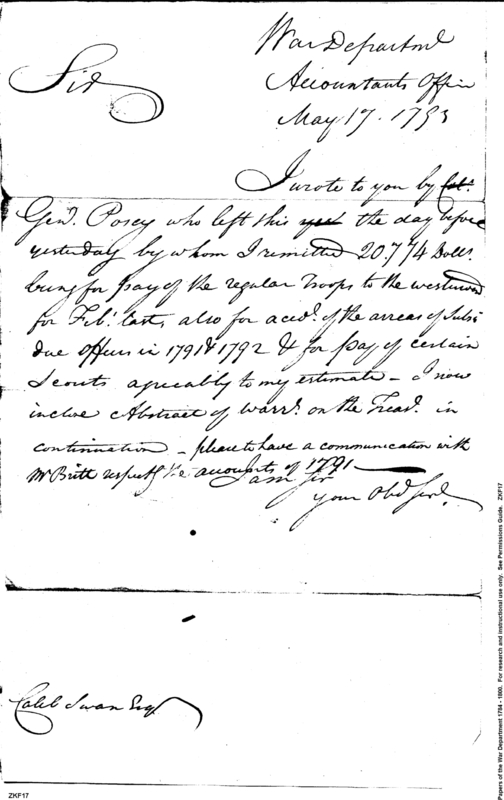 War Department
Accountants Office
May 17. 1793
Sir
I wrote to you by Col:
Genl. Posey who left this yest the day before
yesterday by whom I remitted 20.774 Dolls.
being for pay of the regular Troops to the westward
for Feb: last, also for acco. of the arreas of Subs:
due officers in 1791 & 1792 & for pay of certain
Scouts agreeably to my estimate - I now
inclose Abstract of Warrs. on the Treas. in
continuation - please to have a communication with
Mr Britt respectg the accounts of 1791
I am Sir
your Obd Servt.
Caleb Swan Esqr
ZKF17
Papers of the War Department 1784 - 1800. For research and instructional use only. See Permissions Guide. ZKF17